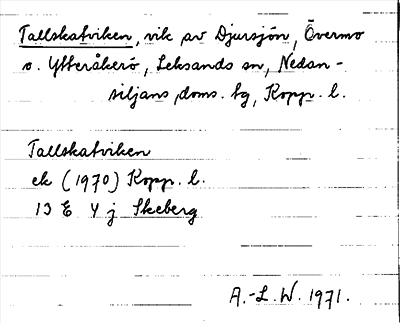 Tallskatviken, vik av Djursjön, Övermo
o. Ytteråkerö, Leksands sn, Nedan-
siljans doms. tg, Kopp. l.
Tallskatviken
ek (1970) Kopp. l.
13 E 4 j Skeberg
A.-L. W. 1971.